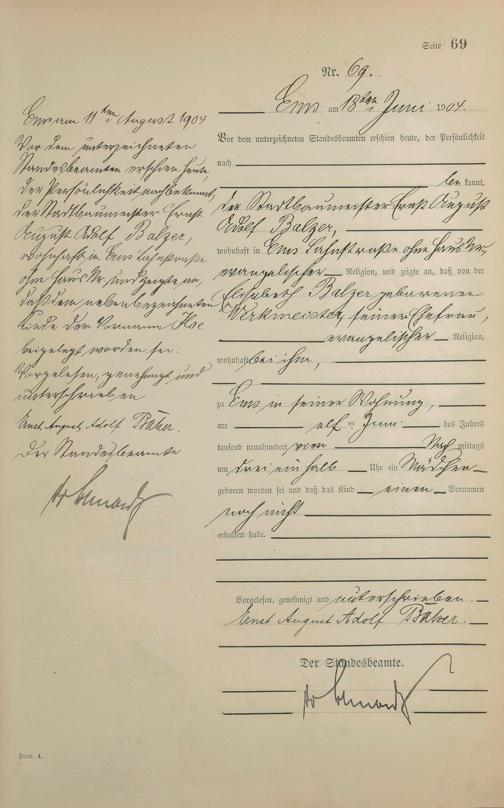 Seite 69
Nr. 69.
Ems am 18ten Juni 1904.
Vor dem unterzeichneten Standesbeamten erschien heute, der Persönlichkeit
nach
be kannt,
der Stadtbaumeister Ernst August
Adolf Balzer,
wohnhaft in Ems Lahnstraße ohne Haus Nr,
evangelischer Religion, und zeigte an, daß von der
Elisabeth Balzer geborenen
Werkmeister, seiner Ehefrau,
evangelischer Religion,
wohnhaft bei ihm,
zu Ems in seiner Wohnung,
am elften Juni des Jahres
tausend neunhundert vier Nach mittags
um drei einhalb Uhr ein Mädchen
geboren worden sei und daß das Kind einen Vornamen
noch nicht
erhalten habe.
Vorgelesen, genehmigt und unterschrieben
Ernst August Adolf Balzer.
Der Standesbeamte.
Ems am 11ten August 1904
Vor dem unterzeichneten
Standesbeamten erschien heute
der Persönlichkeit nach bekannt,
der Stadtbaumeister Ernst
August Adolf Balzer,
wohnhaft in Ems Lahnstraße
ohne Haus Nr. und zeigte an,
daß dem nebenbezeichneten
Kinde der Vorname Ilse
beigelegt worden sei.
Vorgelesen, genehmigt und
unterschrieben
Ernst August Adolf Balzer.
Der Standesbeamte
Form. A.